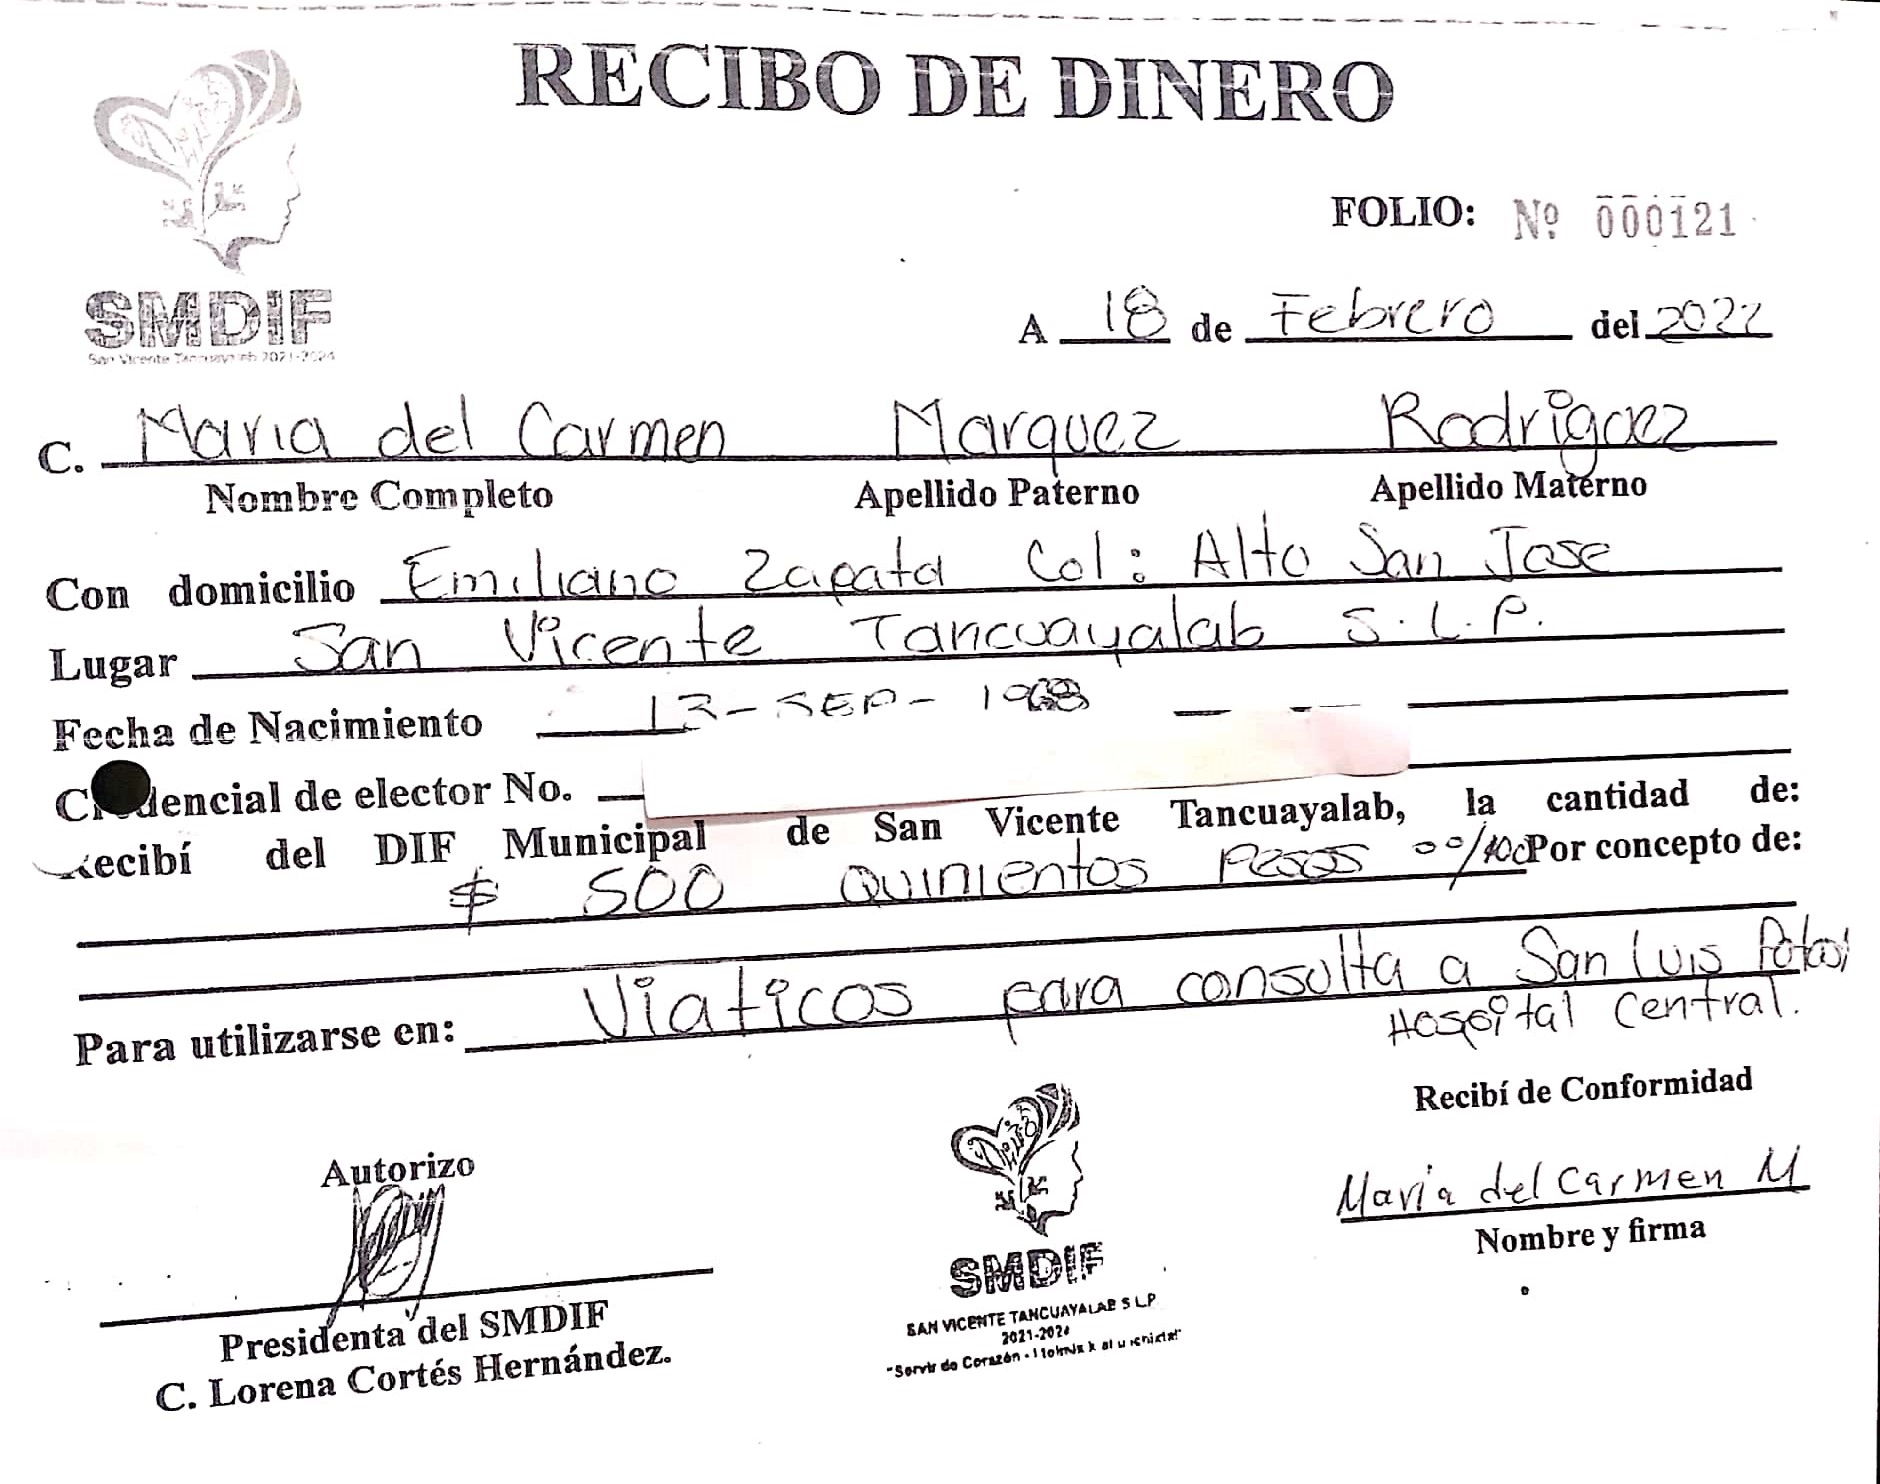 RECIBO DE DINERO
SMDIF
San Vicente Tancuayalab 2021-2024
FOLIO: Nº 000121
A 18 de Febrero del 2022
C. Maria del Carmen Marquez Rodriguez
Nombre Completo Apellido Paterno Apellido Materno
Con domicilio Emiliano Zapata Col: Alto San Jose
Lugar San Vicente Tancuayalab S.L.P.
Fecha de Nacimiento 13-SEP-
Credencial de elector No.
Recibí del DIF Municipal de San Vicente Tancuayalab, la cantidad de:
$ 500 Quinientos Pesos 00/100 Por concepto de:
Para utilizarse en: Viaticos para consulta a San Luis Potosi
Hospital Central.
Recibí de Conformidad
Autorizo
Maria del Carmen M
Nombre y firma
Presidenta del SMDIF
C. Lorena Cortés Hernández.
SMDIF
SAN VICENTE TANCUAYALAB S L.P
2021-2024
"Servir de Corazón -